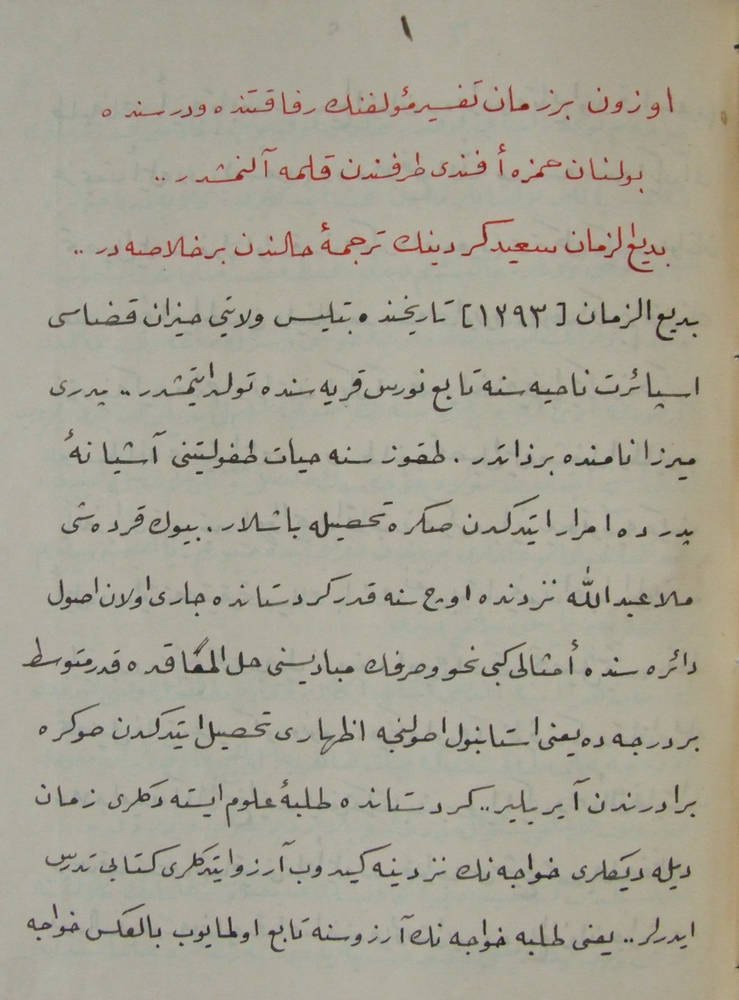 ١
اوزون برزمان تفسیر مؤلفنك رفاقتنده ودرسنده
بولنان حمزه أفندی طرفندن قلمه آلنمشدر ..
بدیع الزمان سعید کردینك ترجمۀ حالندن برخلاصه در ..
بدیع الزمان [١٢٩٣] تاریخنده بتلیس ولایتی حیزان قضاسی
اسپائرت ناحیه سنه تابع نورس قریه سنده تولد ایتمشدر .. پدری
میرزا نامنده برذاتدر . طقوز سنه حیات طفولیتنی آشیانۀ
پدرده امرار ایتدکدن صکره تحصیله باشلار . بیوك قرده شی
ملا عبد الله نزدنده اوچ سنه قدر کردستانده جاری اولان اصول
دائره سنده أمثالی کبی نحو وصرفك مبادیسنی حل المعاقده قدر متوسط
بردرجه ده یعنی استانبول اصولنجه اظهاری تحصیل ایتدکدن صوکره
برادرندن آیریلیر .. کردستانده طلبۀ علوم ایسته دکلری زمان
دیله دیکلری خواجه نك نزدینه کیدوب آرزو ایتدکلری کتابی تدرس
ایدرلر .. یعنی طلبه خواجه نك آرزوسنه تابع اولمایوب بالعکس خواجه